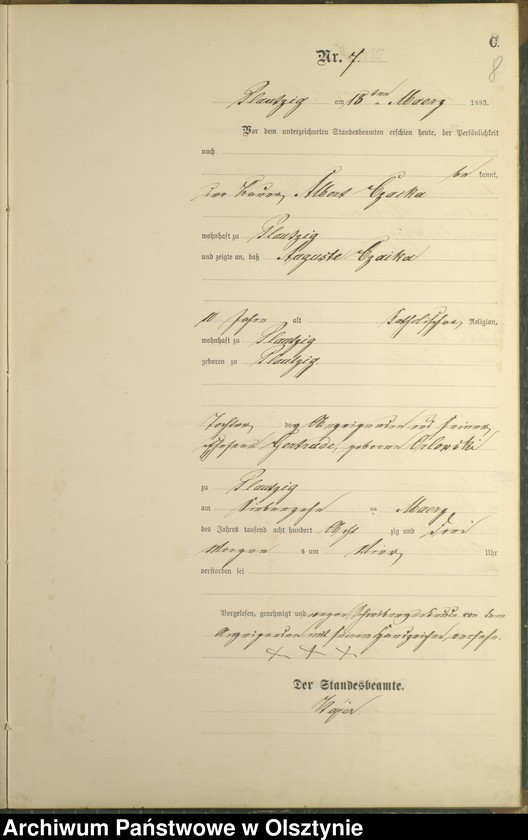 C.
8
Nr. 7.
Plautzig am 18ten Maerz 1883.
Vor dem unterzeichneten Standesbeamten erschien heute, der Persönlichkeit
nach
be kannt,
der Bauer Albert Czaika
wohnhaft zu Plautzig
und zeigte an, daß Auguste Czaika
Jahre alt katholischer Religion,
wohnhaft zu Plautzig
geboren zu Plautzig.
Tochter des Anzeigenden und seiner
Ehefrau Gertrude, geborene Orlowski
zu Plautzig
am Siebenzehn ten Maerz
des Jahres tausend acht hundert Acht zig und drei
Morgen s um Vier Uhr
verstorben sei
Vorgelesen, genehmigt und wegen Schreibensunkunde von dem
Anzeigenden mit seinem Handzeichen versehen.
+ + +
Der Standesbeamte.
Archiwum Państwowe w Olsztynie